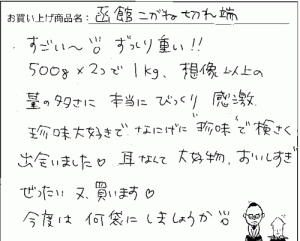 お買い上げ商品名：函館こがね切れ端
すごい〜 ずっしり重い!!
500g×2つで1kg、想像以上の
量の多さに 本当に びっくり 感激
珍味大好きで なにげに"珍味"で検さく
出会いました♡ 耳なんて 大好物、おいしすぎ
ぜったい 又、買います♡
今度は 何袋に しましょうか